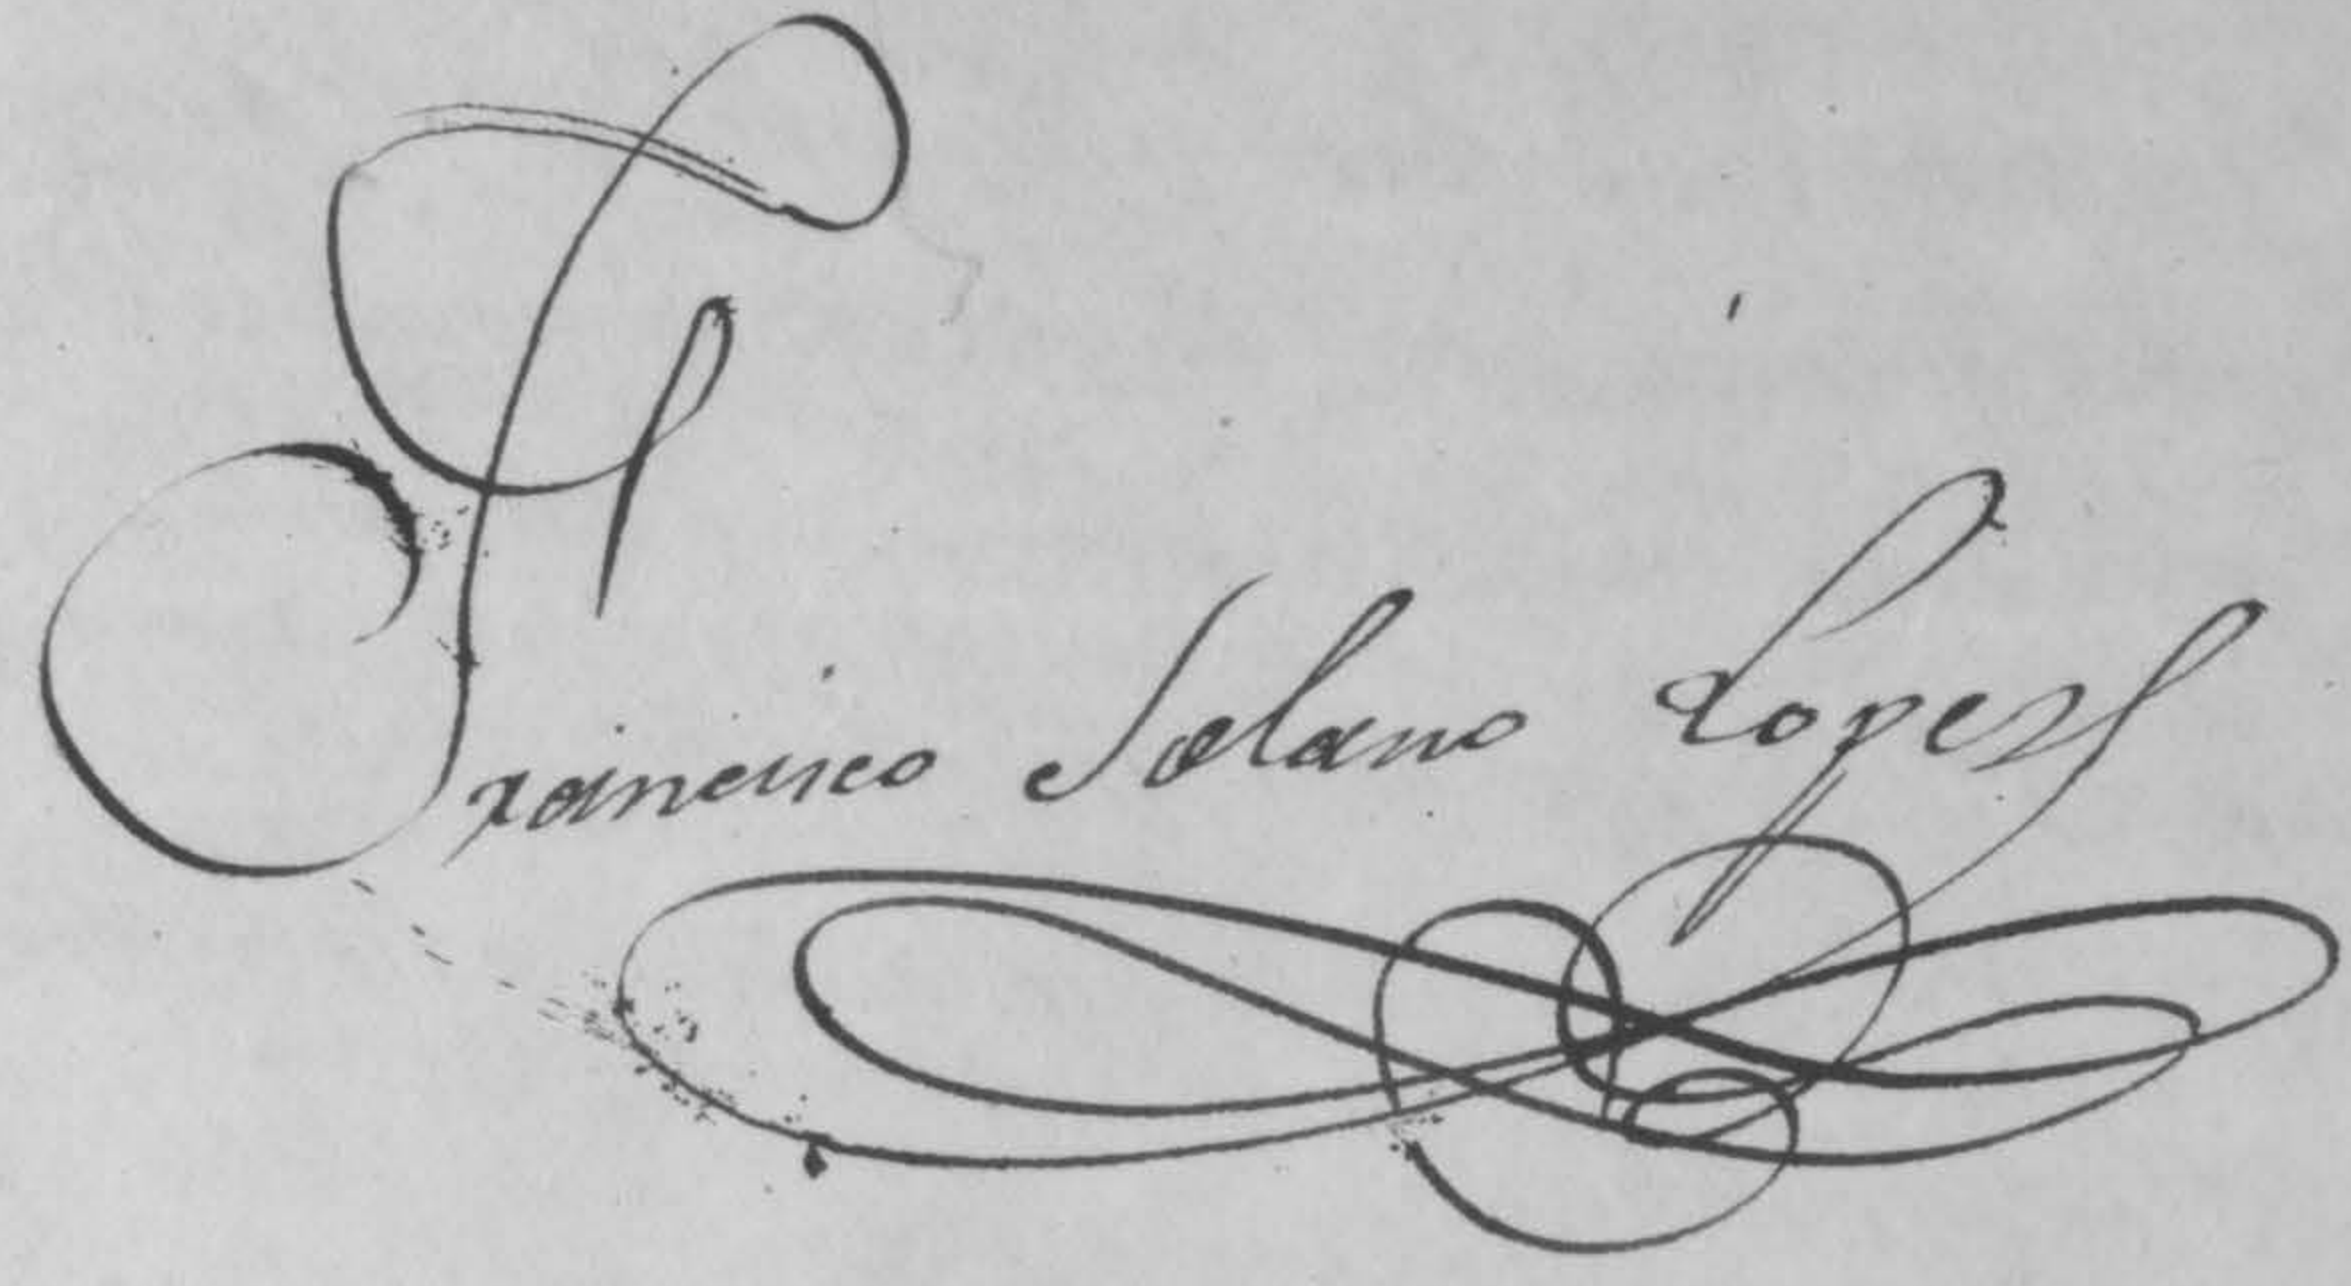 Francisco Solano Lopez